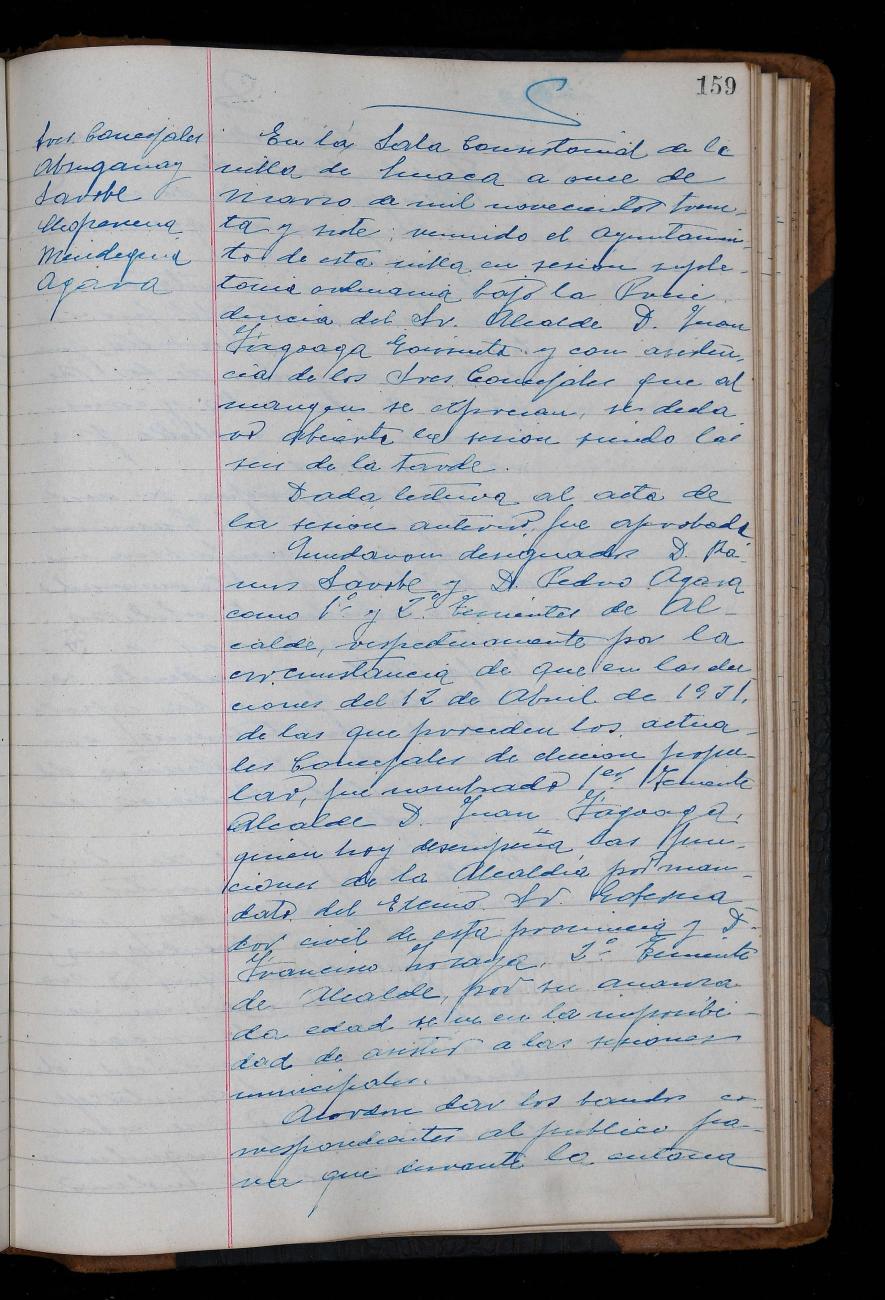 159
Sres. Concejales
Abruganay
Sarobe
Mendeguia
Agara
En la Sala Consistorial de la
villa de a once de
Marzo de mil novecientos trein-
ta y siete; reunido el ayuntamien-
to de esta villa en sesión suple-
toria ordinaria bajo la Presi-
dencia del Sr. Alcalde D. Juan
Yrigoaga y con asisten-
cia de los Sres Concejales que al
margen se expresan, se decla
ró abierta la sesión siendo las
seis de la tarde.
Dada lectura al acta de
la sesión anterior, fue aprobada
Quedaron designados D. Ra-
mos Sarobe y D. Pedro Agara
como 1º y 2º Tenientes de Al-
calde, respectivamente por la
circunstancia de que en las elec
ciones del 12 de Abril de 1931,
de las que proceden los actua-
les Concejales de elección popu-
lar, fue nombrado 1er Teniente
Alcalde D. Juan Yrigoaga,
quien hoy desempeña las fun-
ciones de la Alcaldía por man-
dato del Excmo Sr. Goberna
dor civil de esta provincia y D.
Francisco 2º Teniente
de Alcalde, por su avanza
da edad se ve en la imposibi-
dad de asistir a las sesiones
municipales.
Acordose dar los bandos co-
rrespondientes al público pa-
ra que durante la